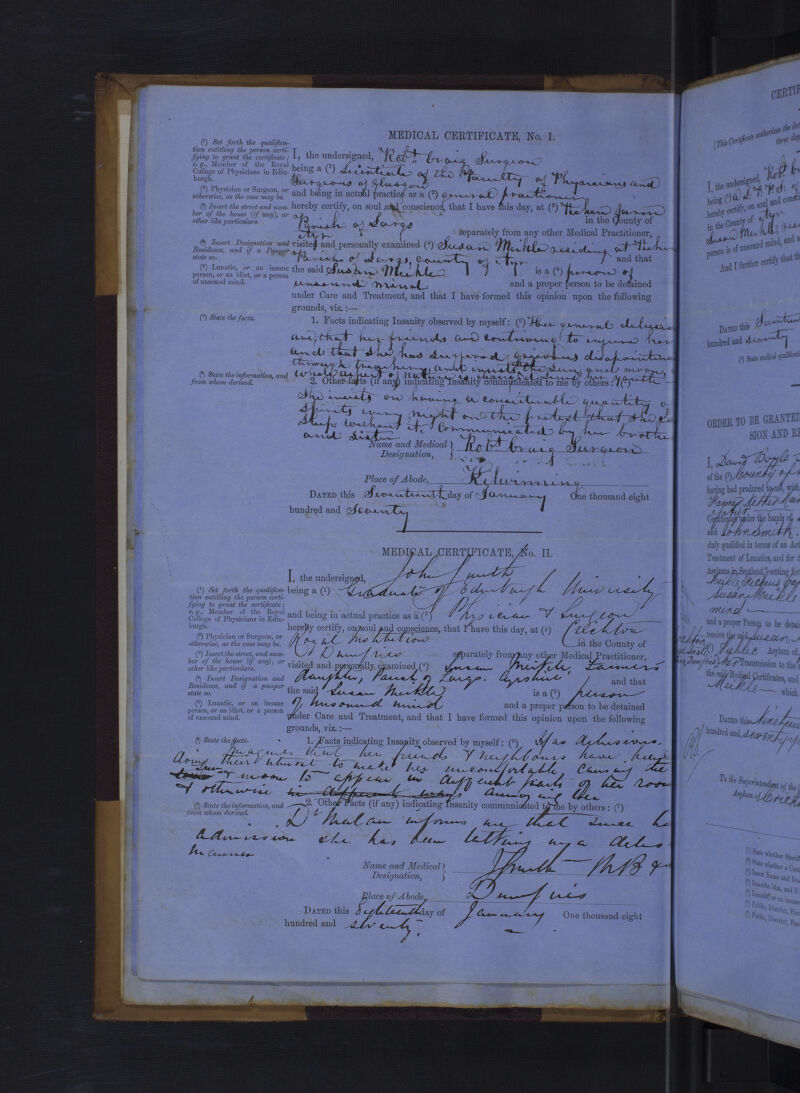 MEDICAL CERTIFICATE, No. I.
(¹) Set forth the qualifica-
tion entitling the person certi-
fying to grant the certificate;
e.g., Member of the Royal
College of Physicians in Edin-
burgh.
(²) Physician or Surgeon, or
otherwise, as the case may be.
(³) Insert the street and num-
ber of the house (if any), or
other like particulars.
(⁴) Insert Designation and
Residence, and if a Pauper
state so.
(⁵) Lunatic, or an insane
person, or an idiot, or a person
of unsound mind.
(⁶) State the facts.
(⁷) State the information, and
from whom derived.
I, the undersigned, Robt. Craig Surgeon
being a (¹) Licentiate of the Faculty of Physicians and
Surgeons of Glasgow
and being in actual practice as a (²) general practitioner
hereby certify, on soul and conscience, that I have this day, at (³)
Parish of Largs in the County of
Ayr separately from any other Medical Practitioner,
visited and personally examined (⁴) Susan Meikle residing at
Parish of Largs, county of Ayr and that
the said Susan Meikle is a (⁵) person of
unsound mind and a proper person to be detained
under Care and Treatment, and that I have formed this opinion upon the following
grounds, viz.:—
1. Facts indicating Insanity observed by myself: (⁶) Her general delusions
are, that her friends are continuing to injure her
and that she has suffered grievous disappointment
through and insists the sun and moon
whole aspect of nature is changed
2. Other facts (if any) indicating Insanity communicated to me by others: (⁷)
She insists on having a considerable quantity of
spirits every night on the pretext that she
sleep without it. Communicated by her brother
and sister
Name and Medical Designation, } Robt. Craig Surgeon
Place of Abode, Kilwinning
DATED this Seventeenth day of January One thousand eight
hundred and Seventy
MEDICAL CERTIFICATE, No. II.
(¹) Set forth the qualifica-
tion entitling the person certi-
fying to grant the certificate;
e.g., Member of the Royal
College of Physicians in Edin-
burgh.
(²) Physician or Surgeon, or
otherwise, as the case may be.
(³) Insert the street, and num-
ber of the house (if any), or
other like particulars.
(⁴) Insert Designation and
Residence, and if a pauper
state so.
(⁵) Lunatic, or an insane
person, or an idiot, or a person
of unsound mind.
(⁶) State the facts.
(⁷) State the information, and
from whom derived.
I, the undersigned, John Smith
being a (¹) Graduate of Edinburgh University
and being in actual practice as a (²) Physician & Surgeon
hereby certify, on soul and conscience, that I have this day, at (³) Crichton
Royal Institution in the County of
Dumfries separately from any other Medical Practitioner,
visited and personally examined (⁴) Susan Meikle, Farmer's
daughter, Parish of Largs. Ayrshire and that
the said Susan Meikle is a (⁵) person
of unsound mind and a proper person to be detained
under Care and Treatment, and that I have formed this opinion upon the following
grounds, viz.:—
1. Facts indicating Insanity observed by myself: (⁶) Has delusions.
Imagines that her friends & neighbours have been
doing their utmost to make her uncomfortable causing the
sun & moon to appear in different parts of her room
& otherwise in different ways annoying her
2. Other Facts (if any) indicating Insanity communicated to me by others: (⁷)
Dr informs me that since her
admission she has been talking in a
manner
Name and Medical Designation, } J Smith M B &
Place of Abode, Dumfries
DATED this Eighteenth day of January One thousand eight
hundred and seventy.
(This Certificate authorizes the
I, the undersigned,
being (¹) a L. F. P. S. of
hereby certify, on soul and
in the County of Ayr
Susan Meikle
person is of unsound mind, and
And I further certify that
DATED this Seventeenth
hundred and seventy
(²) State medical
ORDER TO BE GRANTED
SION AND
I, David Boyle
of the (¹) County of
having had produced to me, with
Certificates under the hands of
and John Smith.
duly qualified in terms of an Act
Treatment of Lunatics, and for
Asylums in Scotland,
Susan Meikle
mind
and a proper Person to be
receive the said Susan
Public Asylum of
Transmission to the
the said Medical Certificates, and
Meikle which
DATED this Nineteenth
hundred and seventy
To the Superintendent of the
Asylum of